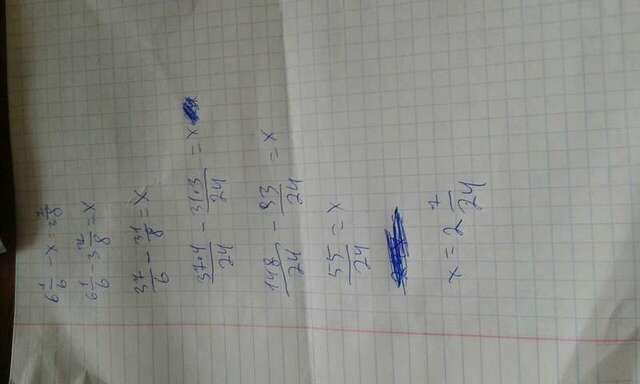 6 1/6 - x 3 7/8
6 1/6 - 3 7/8 = x
37/6 - 31/8 = x
37·4/24 - 31·3/24 = x
148/24 - 93/24 = x
55/24 = x
x = 2 7/24